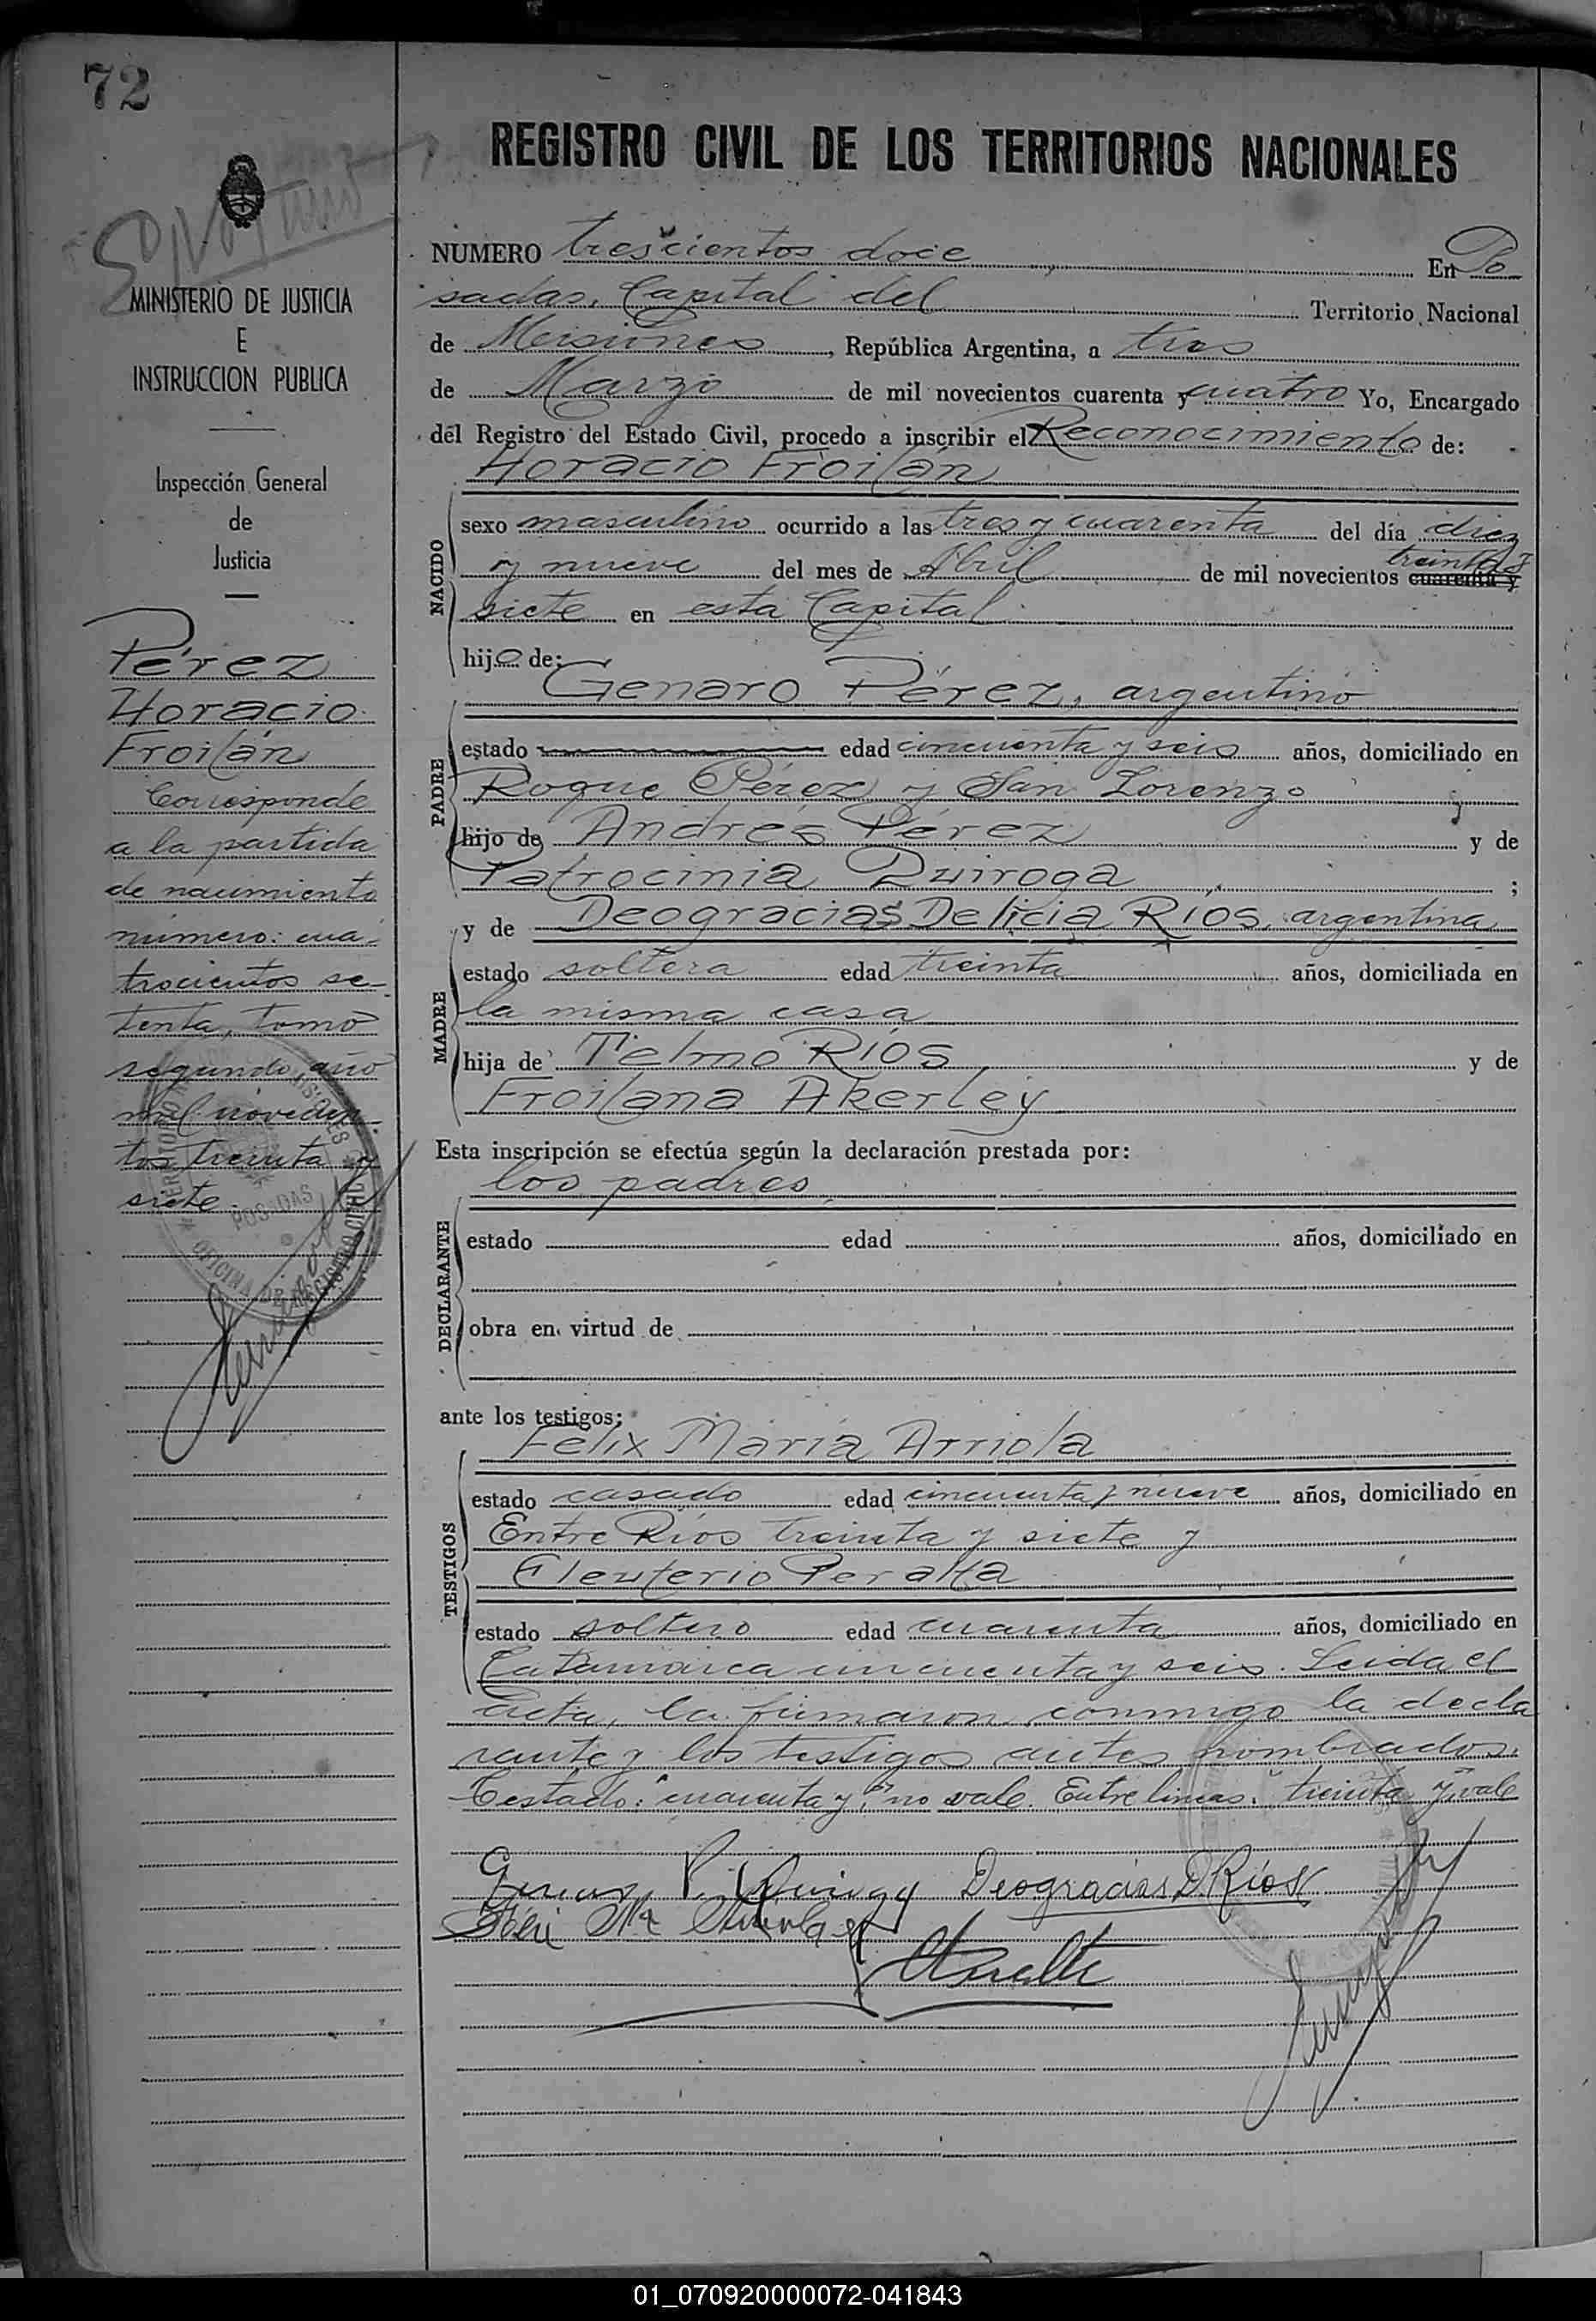 72
REGISTRO CIVIL DE LOS TERRITORIOS NACIONALES
MINISTERIO DE JUSTICIA
E
INSTRUCCION PUBLICA
Inspección General
de
Justicia
Pérez
Horacio
Froilán
Corresponde
a la partida
de nacimiento
número: cua-
trocientos se-
tenta, tomo
segundo, año
mil novecien-
tos treinta y
siete.
POSADAS
OFICINA DE REGISTRO CIVIL
NUMERO trescientos doce En Po
sadas, Capital del Territorio Nacional
de Misiones, República Argentina, a tres
de Marzo de mil novecientos cuarenta y cuatro Yo, Encargado
del Registro del Estado Civil, procedo a inscribir el Reconocimiento de:
Horacio Froilán
NACIDO
sexo masculino ocurrido a las tres y cuarenta del día diez
treinta y
y nueve del mes de Abril de mil novecientos cuarenta y
siete en esta Capital
hijo de:
Genaro Pérez, argentino
PADRE
estado edad cincuenta y seis años, domiciliado en
Roque Pérez y San Lorenzo
hijo de Andrés Pérez y de
Patrocinia Quiroga ;
y de Deogracias Delicia Ríos, argentina
MADRE
estado soltera edad treinta años, domiciliada en
la misma casa
hija de Telmo Ríos y de
Froilana Akerley
Esta inscripción se efectúa según la declaración prestada por:
los padres
DECLARANTE
estado edad años, domiciliado en
obra en virtud de
ante los testigos:
Félix María Arriola
TESTIGOS
estado casado edad cincuenta y nueve años, domiciliado en
Entre Ríos treinta y siete y
Eleuterio Peralta
estado soltero edad cuarenta años, domiciliado en
Catamarca cincuenta y seis. Leida el
acta, la firmaron conmigo la decla
rante y los testigos antes nombrados.
Testado: "cuarenta y", no vale. Entre lineas: "treinta y" vale
Deogracias D. Ríos
01_070920000072-041843